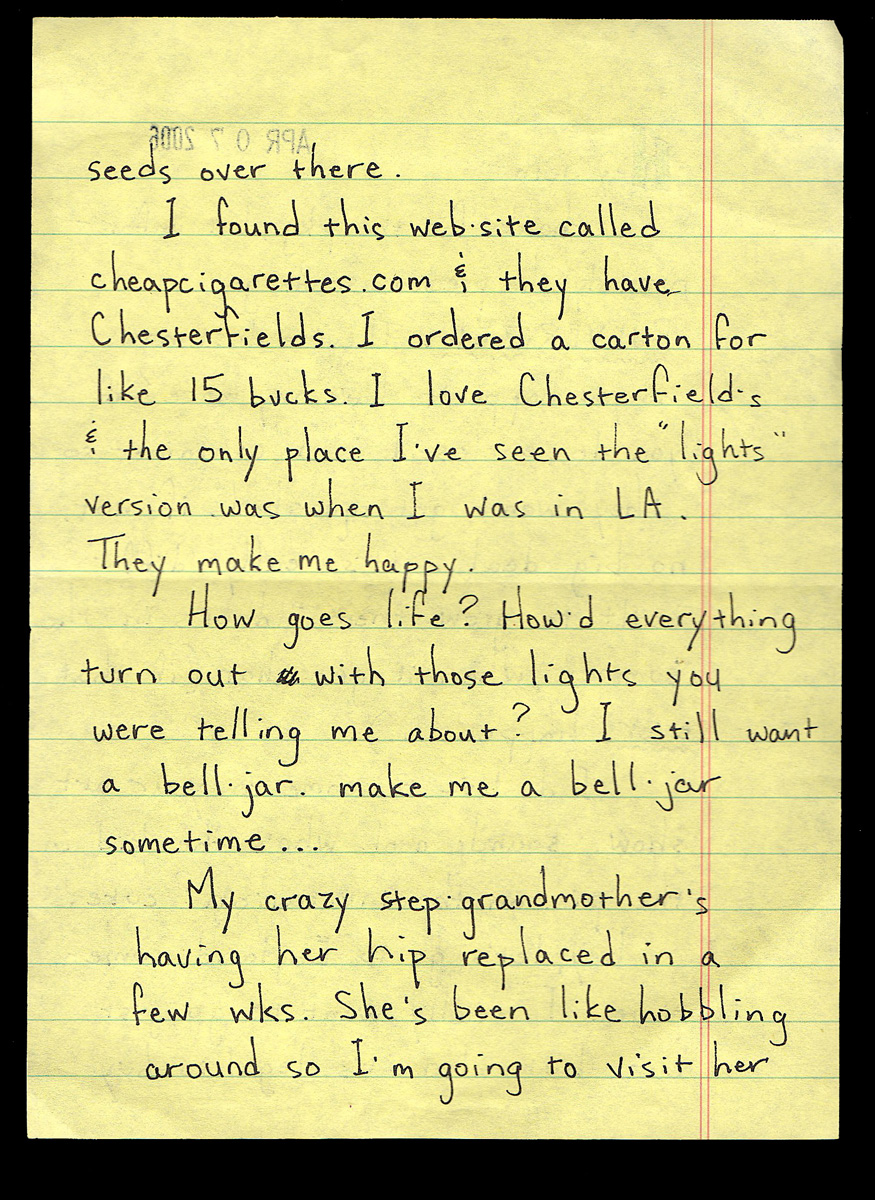 APR 07 2006
seeds over there.
I found this web·site called
cheapcigarettes.com & they have
Chesterfields. I ordered a carton for
like 15 bucks. I love Chesterfield·s
& the only place I've seen the "lights"
version was when I was in LA.
They make me happy.
How goes life? How'd everything
turn out with those lights you
were telling me about? I still want
a bell·jar. make me a bell·jar
sometime...
My crazy step·grandmother's
having her hip replaced in a
few wks. She's been like hobbling
around so I'm going to visit her